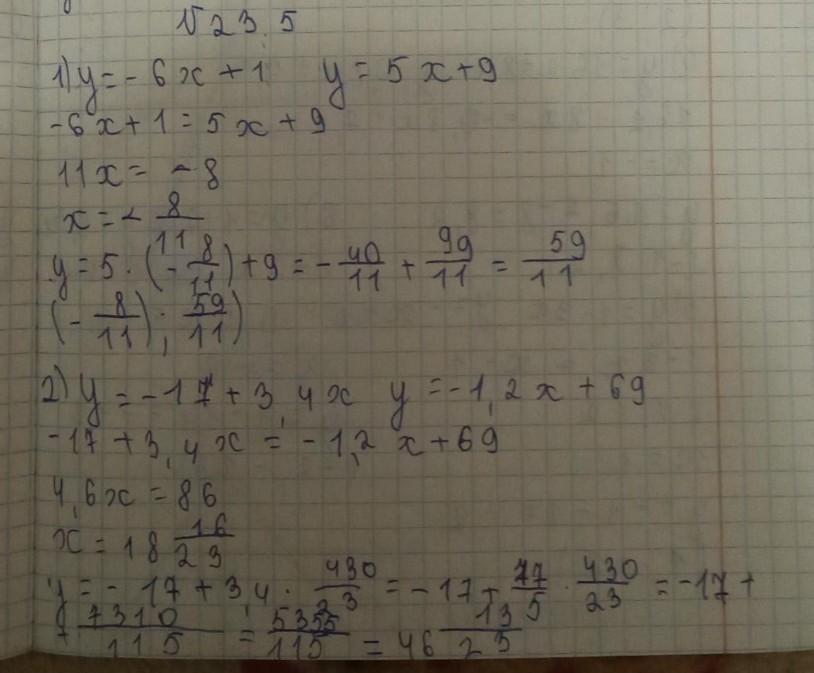 √ 23.5
1) y = - 6x + 1 y = 5x + 9
-6x + 1 = 5x + 9
11x = - 8
x = - 8/11
y = 5 · (- 8/11) + 9 = - 40/11 + 99/11 = 59/11
(- 8/11) ; 59/11)
2) y = -17 + 3,4x y = -1,2x + 69
-17 + 3,4x = -1,2x + 69
4,6x = 86
x = 18 16/23
y = - 17 + 3,4 · 430/23 = - 17 + 17/5 · 430/23 = -17 +
+ 7310/115 = 5355/115 = 46 13/23